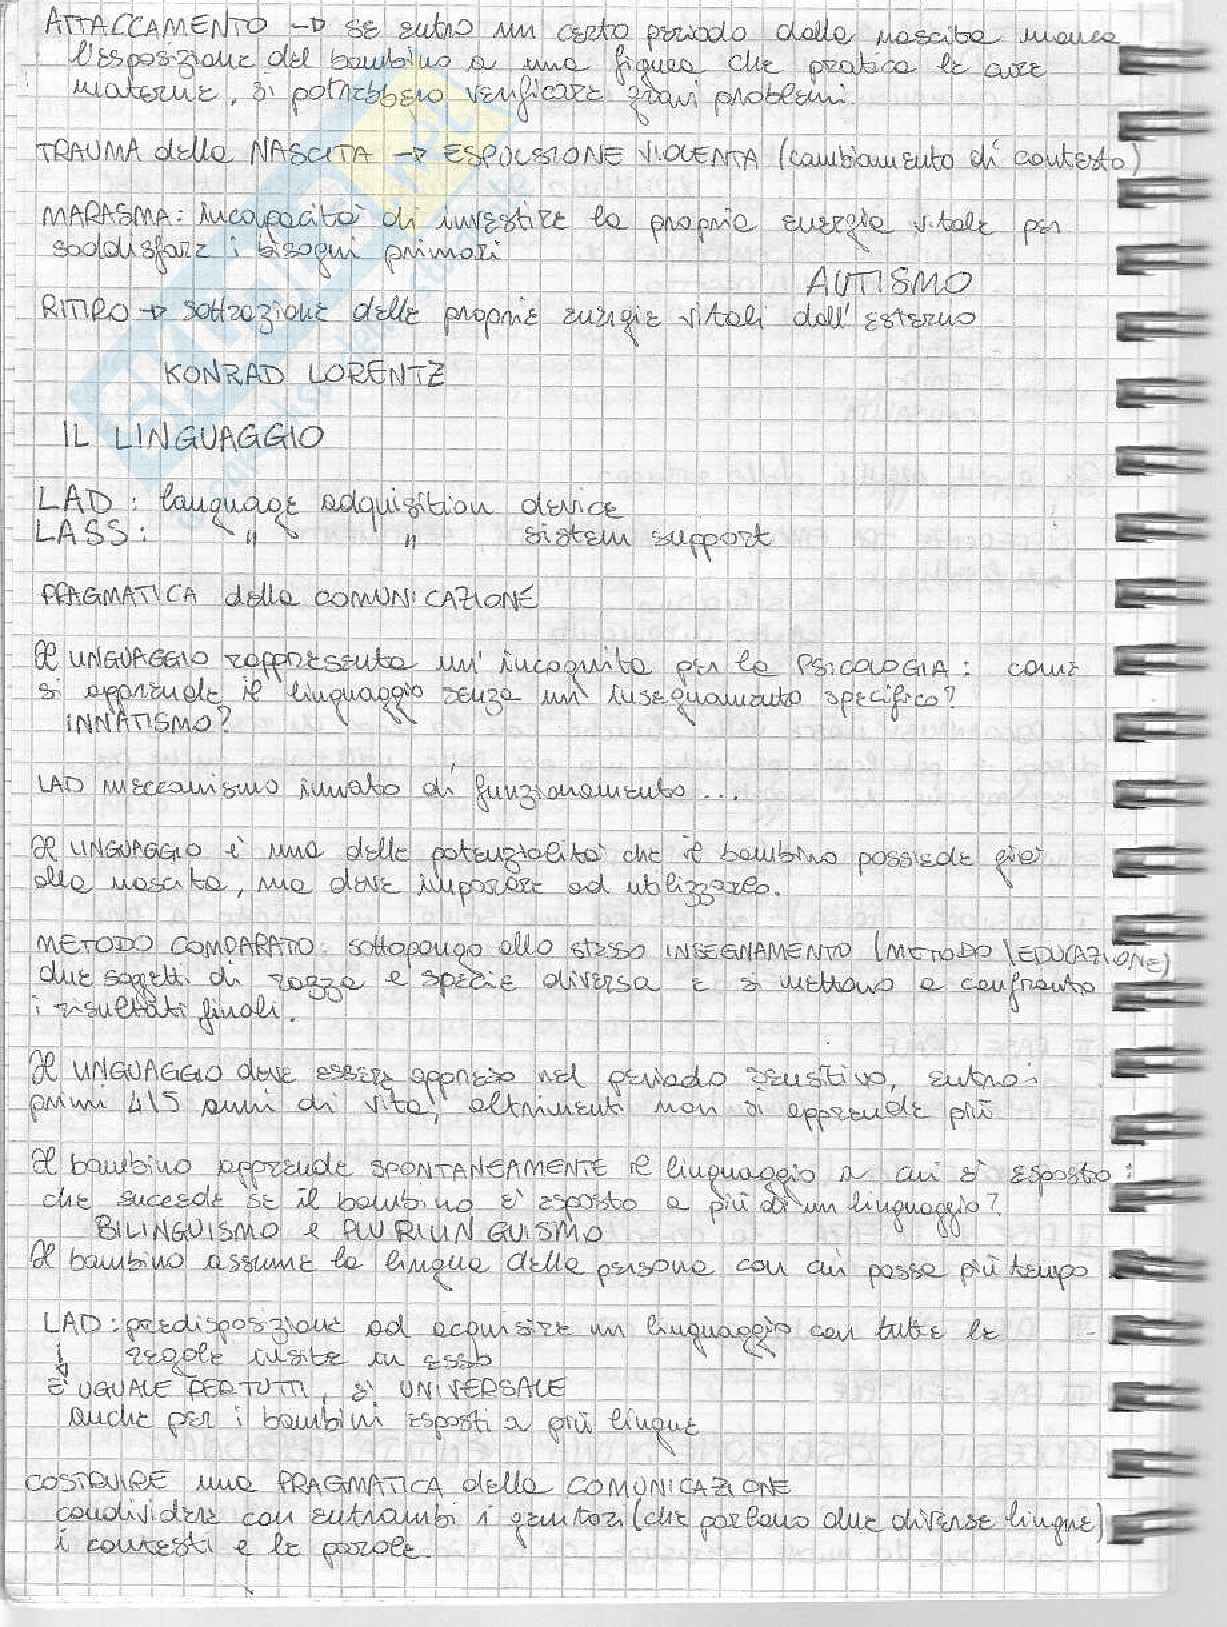 ATTACCAMENTO → se entro un certo periodo dalla nascita manca
l'esposizione del bambino a una figura che pratica le cure
materne, si potrebbero verificare gravi problemi.
TRAUMA della NASCITA → ESPULSIONE VIOLENTA (cambiamento di contesto)
MARASMA: incapacità di investire la propria energia vitale per
soddisfare i bisogni primari
AUTISMO
RITIRO → sottrazione delle proprie energie vitali dall'esterno
KONRAD LORENTZ
IL LINGUAGGIO
LAD: language adquisition device
LASS: " " sistem support
PRAGMATICA della COMUNICAZIONE
Il LINGUAGGIO rappresenta un'incognita per la PSICOLOGIA: come
si apprende il linguaggio senza un insegnamento specifico?
INNATISMO?
LAD meccanismo innato di funzionamento...
Il LINGUAGGIO è una delle potenzialità che il bambino possiede già
alla nascita, ma deve imparare ad utilizzarlo.
METODO COMPARATO: sottopongo allo stesso INSEGNAMENTO (METODO/EDUCAZIONE)
due soggetti di razza e specie diversa e si mettono a confronto
i risultati finali.
Il LINGUAGGIO deve essere appreso nel periodo sensitivo, entro i
primi 4/5 anni di vita, altrimenti non si apprende più
Il bambino apprende SPONTANEAMENTE il linguaggio a cui è esposto:
che succede se il bambino è esposto a più di un linguaggio?
BILINGUISMO e PLURILINGUISMO
Il bambino assume la lingua della persona con cui passa più tempo
LAD: predisposizione ad acquisire un linguaggio con tutte le
↓ regole insite in esso
È UGUALE PER TUTTI, è UNIVERSALE
anche per i bambini esposti a più lingue
COSTRUIRE una PRAGMATICA della COMUNICAZIONE
condividere con entrambi i genitori (che parlano due diverse lingue)
i contesti e le parole.